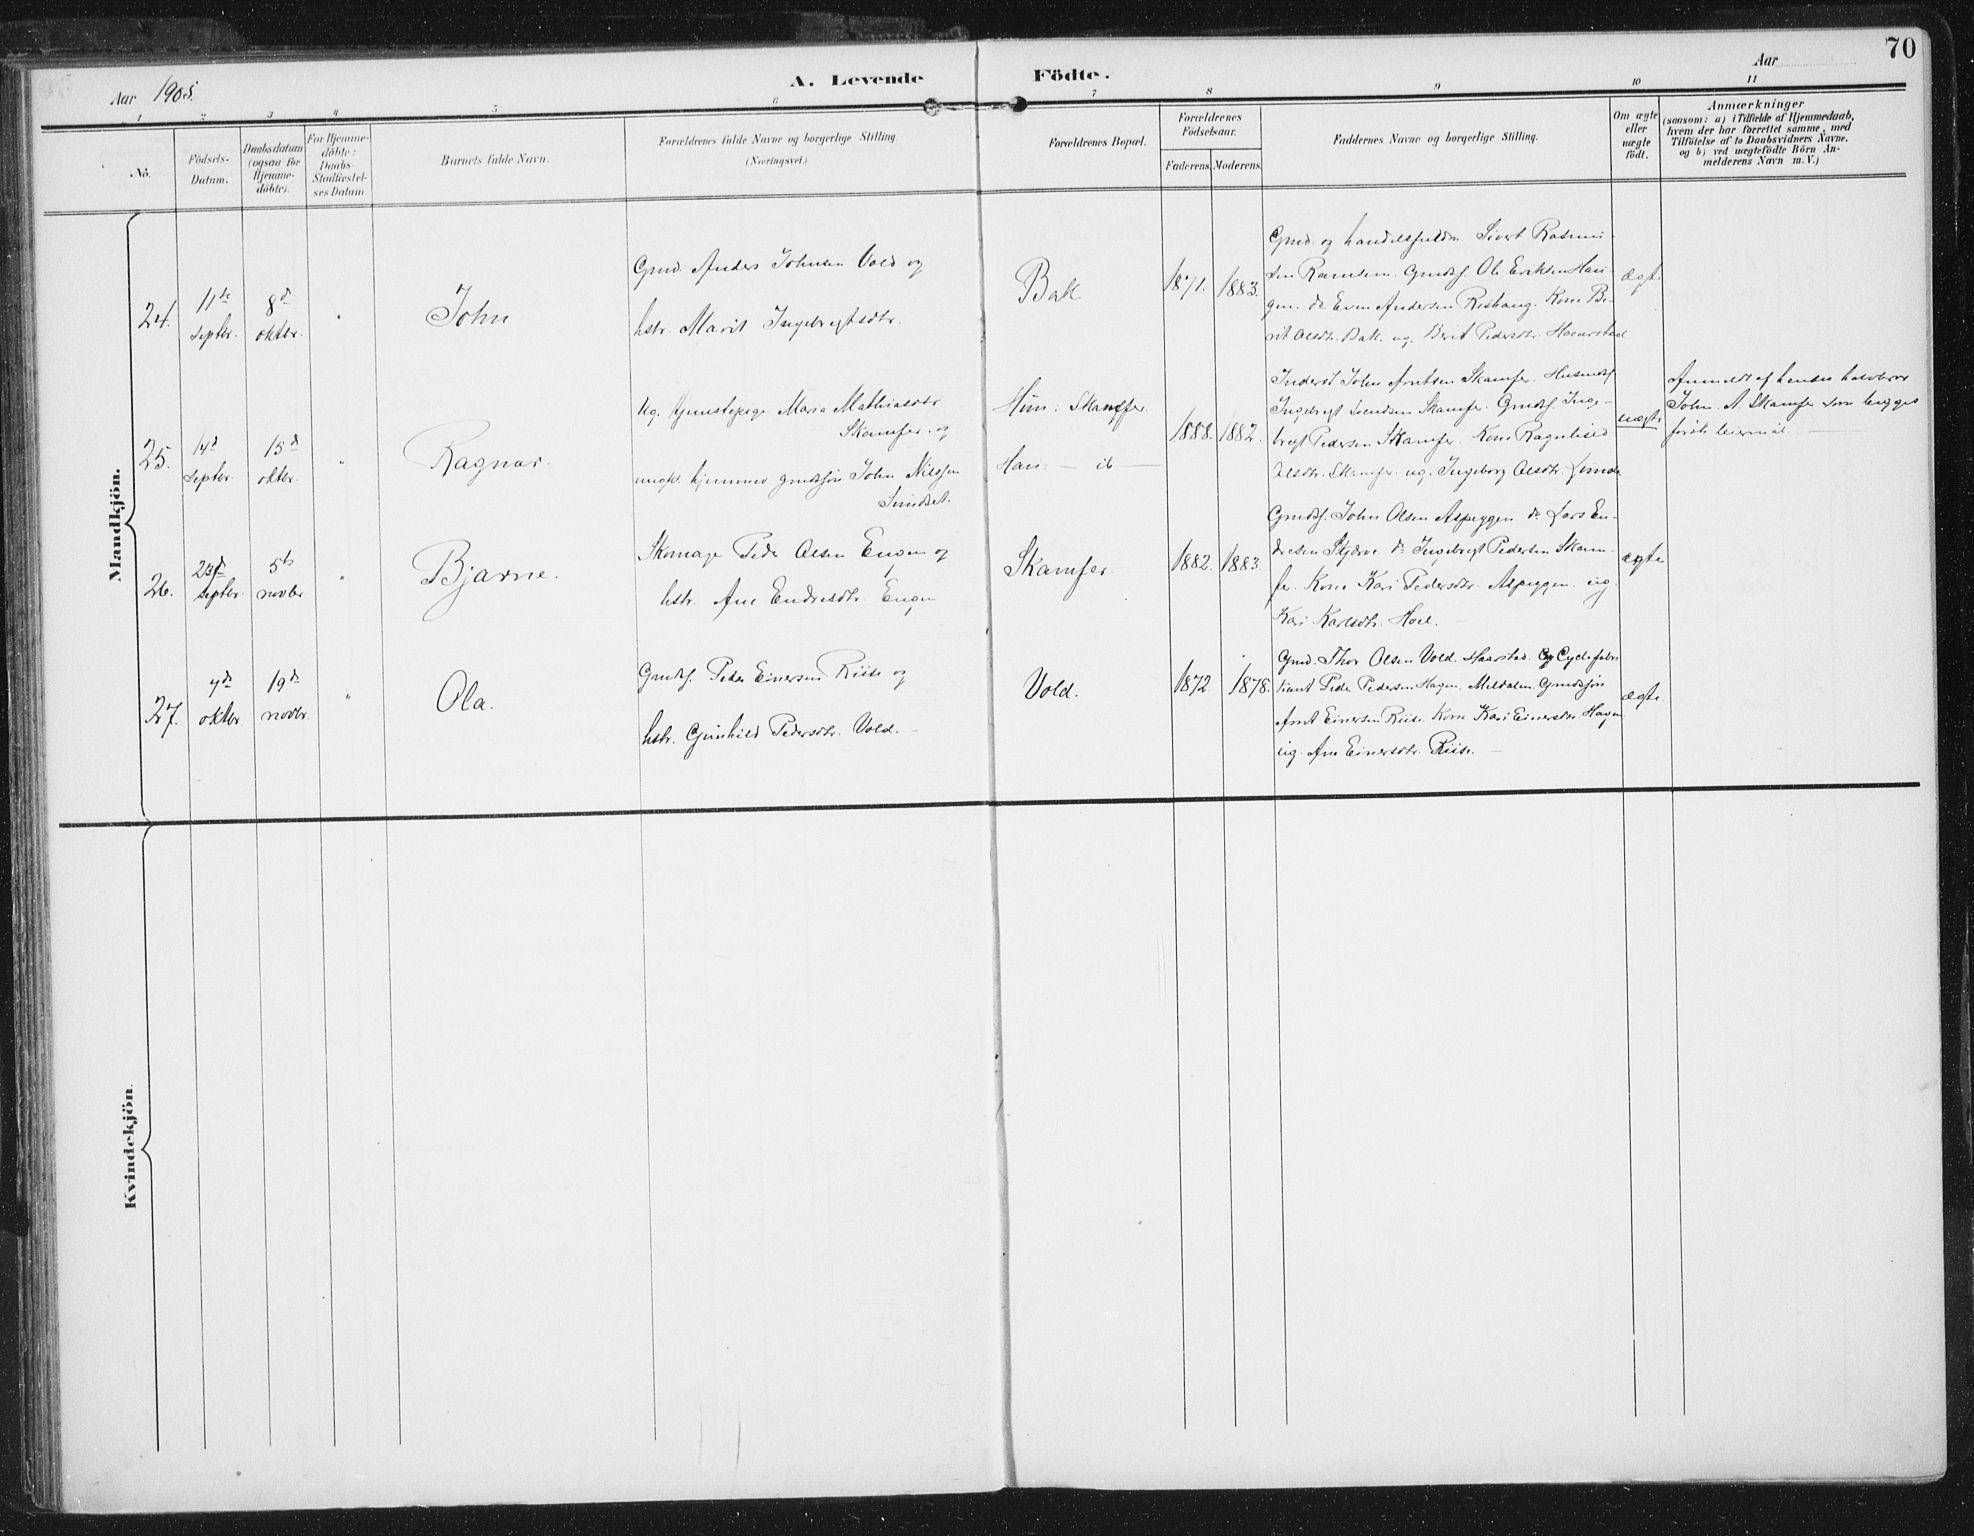 70
Aar 1905.
A. Levende Födte.
Aar
1 2 3 4 5 6 7 8 9 10 11
No.
Födsels-
Datum.
Daabsdatum
(ogsaa for
Hjemme-
döbte).
For Hjemme-
döbte:
Daabs-
Stadfæstel-
ses Datum
Barnets fulde Navn.
Forældrenes fulde Navne og borgerlige Stilling.
(Næringsvei.)
Forældrenes Bopæl.
Forældrenes
Födselsaar.
Faderens. Moderens.
Faddernes Navne og borgerlige Stilling.
Om ægte
eller
uægte
födt.
Anmærkninger
(saasom: a) i Tilfælde af Hjemmedaab,
hvem der har forrettet samme, med
Tilföielse af to Daabsvidners Navne.
og b) ved uægtefödte Börn An-
melderens Navn m. V.)
Mandkjön.
24.
11te
septbr.
8de
oktbr.
"
John
Gmd. Anders Johnsen Vold og
hstr. Marit Ingebrigtsdtr.
Bak
1871. 1883.
Gmd. og handelsfuldm. Sivert Rasmus-
sen Ramsem. Gmdsf. Ole Eriksen Hau-
gen. do Even Andersen Reshaug. Kone Be-
rit Olsdtr. Bak. ug. Berit Pedersdtr. Haarstad
ægte
25.
14d
septbr.
15d
oktbr.
"
Ragnar.
Ug. tjenestepige Maria Mathiasdtr
Skamfer. og
ungk. hjemmev. gmdsøn John Nilssen
Sundset.
Hun: Skamfer.
Han: — ib —
1888. 1882.
Inderst John Arntsen Skamfer. Husmdsf.
Ingebrigt Svendsen Skamfer. Gmdsf. Inge-
brigt Pedersen Skamfer. Kone Ragnhild
Olsdtr. Skamfer. ug. Ingeborg Olsdtr. Lunda
uægte
Anmeldt af hendes halvbror
John. A. Skamfer som begges
første leiermål.
26.
23d
septbr.
5te
novbr
"
Bjarne.
Skomager Peder Olsen Engen og
hstr. Ane Endresdtr. Engen
Skamfer.
1882. 1883.
Gmdsf. John Olsen Aspeggen do Lars En-
dresen Skjerve do Ingebrigt Pedersen Skam-
fer. Kone Kari Pedersdtr. Aspeggen. ug.
Kari Karlsdtr. Hoel.
ægte
27.
7de
oktbr.
19de
novbr.
"
Ola.
Gmdsf. Peder Einersen Riise og
hstr. Gunhild Pedersdtr. Vold.
Vold.
1872. 1878.
Gmd. Thor Olsen Vold. Haarstad. Cyclefabri-
kant Peder Pedersen Hagen. Meldalen. Gmdsøn
Arnt Einersen Riise. Kone Kari Einersdtr. Hagen
ug. Ane Einersdtr. Riise.
ægte
Kvindekjön.